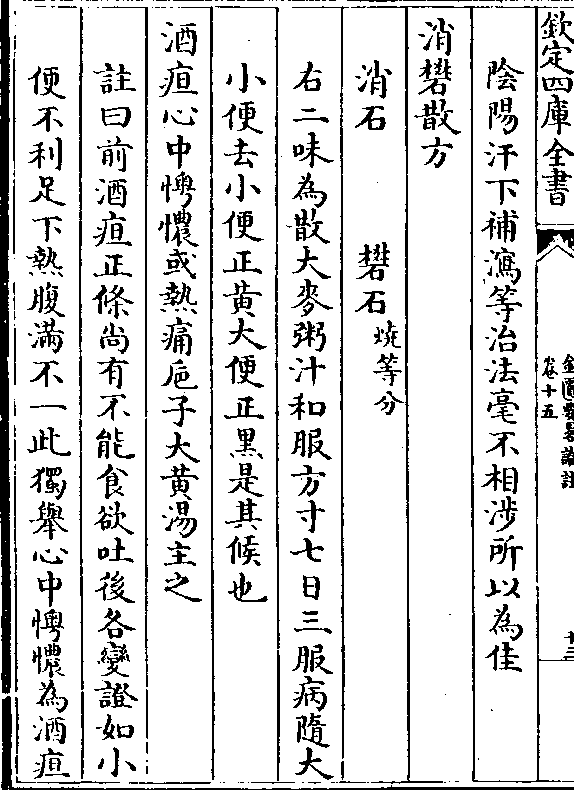 欽定四庫全書
金匱要畧論註
卷十五
十三
陰陽汗下補瀉等治法毫不相涉所以為佳
消礬散方
消石　礬石燒等分
右二味為散大麥粥汁和服方寸七日三服病隨大
小便去小便正黃大便正黑是其候也
酒疸心中懊憹或熱痛梔子大黃湯主之
註曰前酒疸正條尚有不能食欲吐後各變證如小
便不利足下熱腹滿不一此獨舉心中懊憹為酒疸